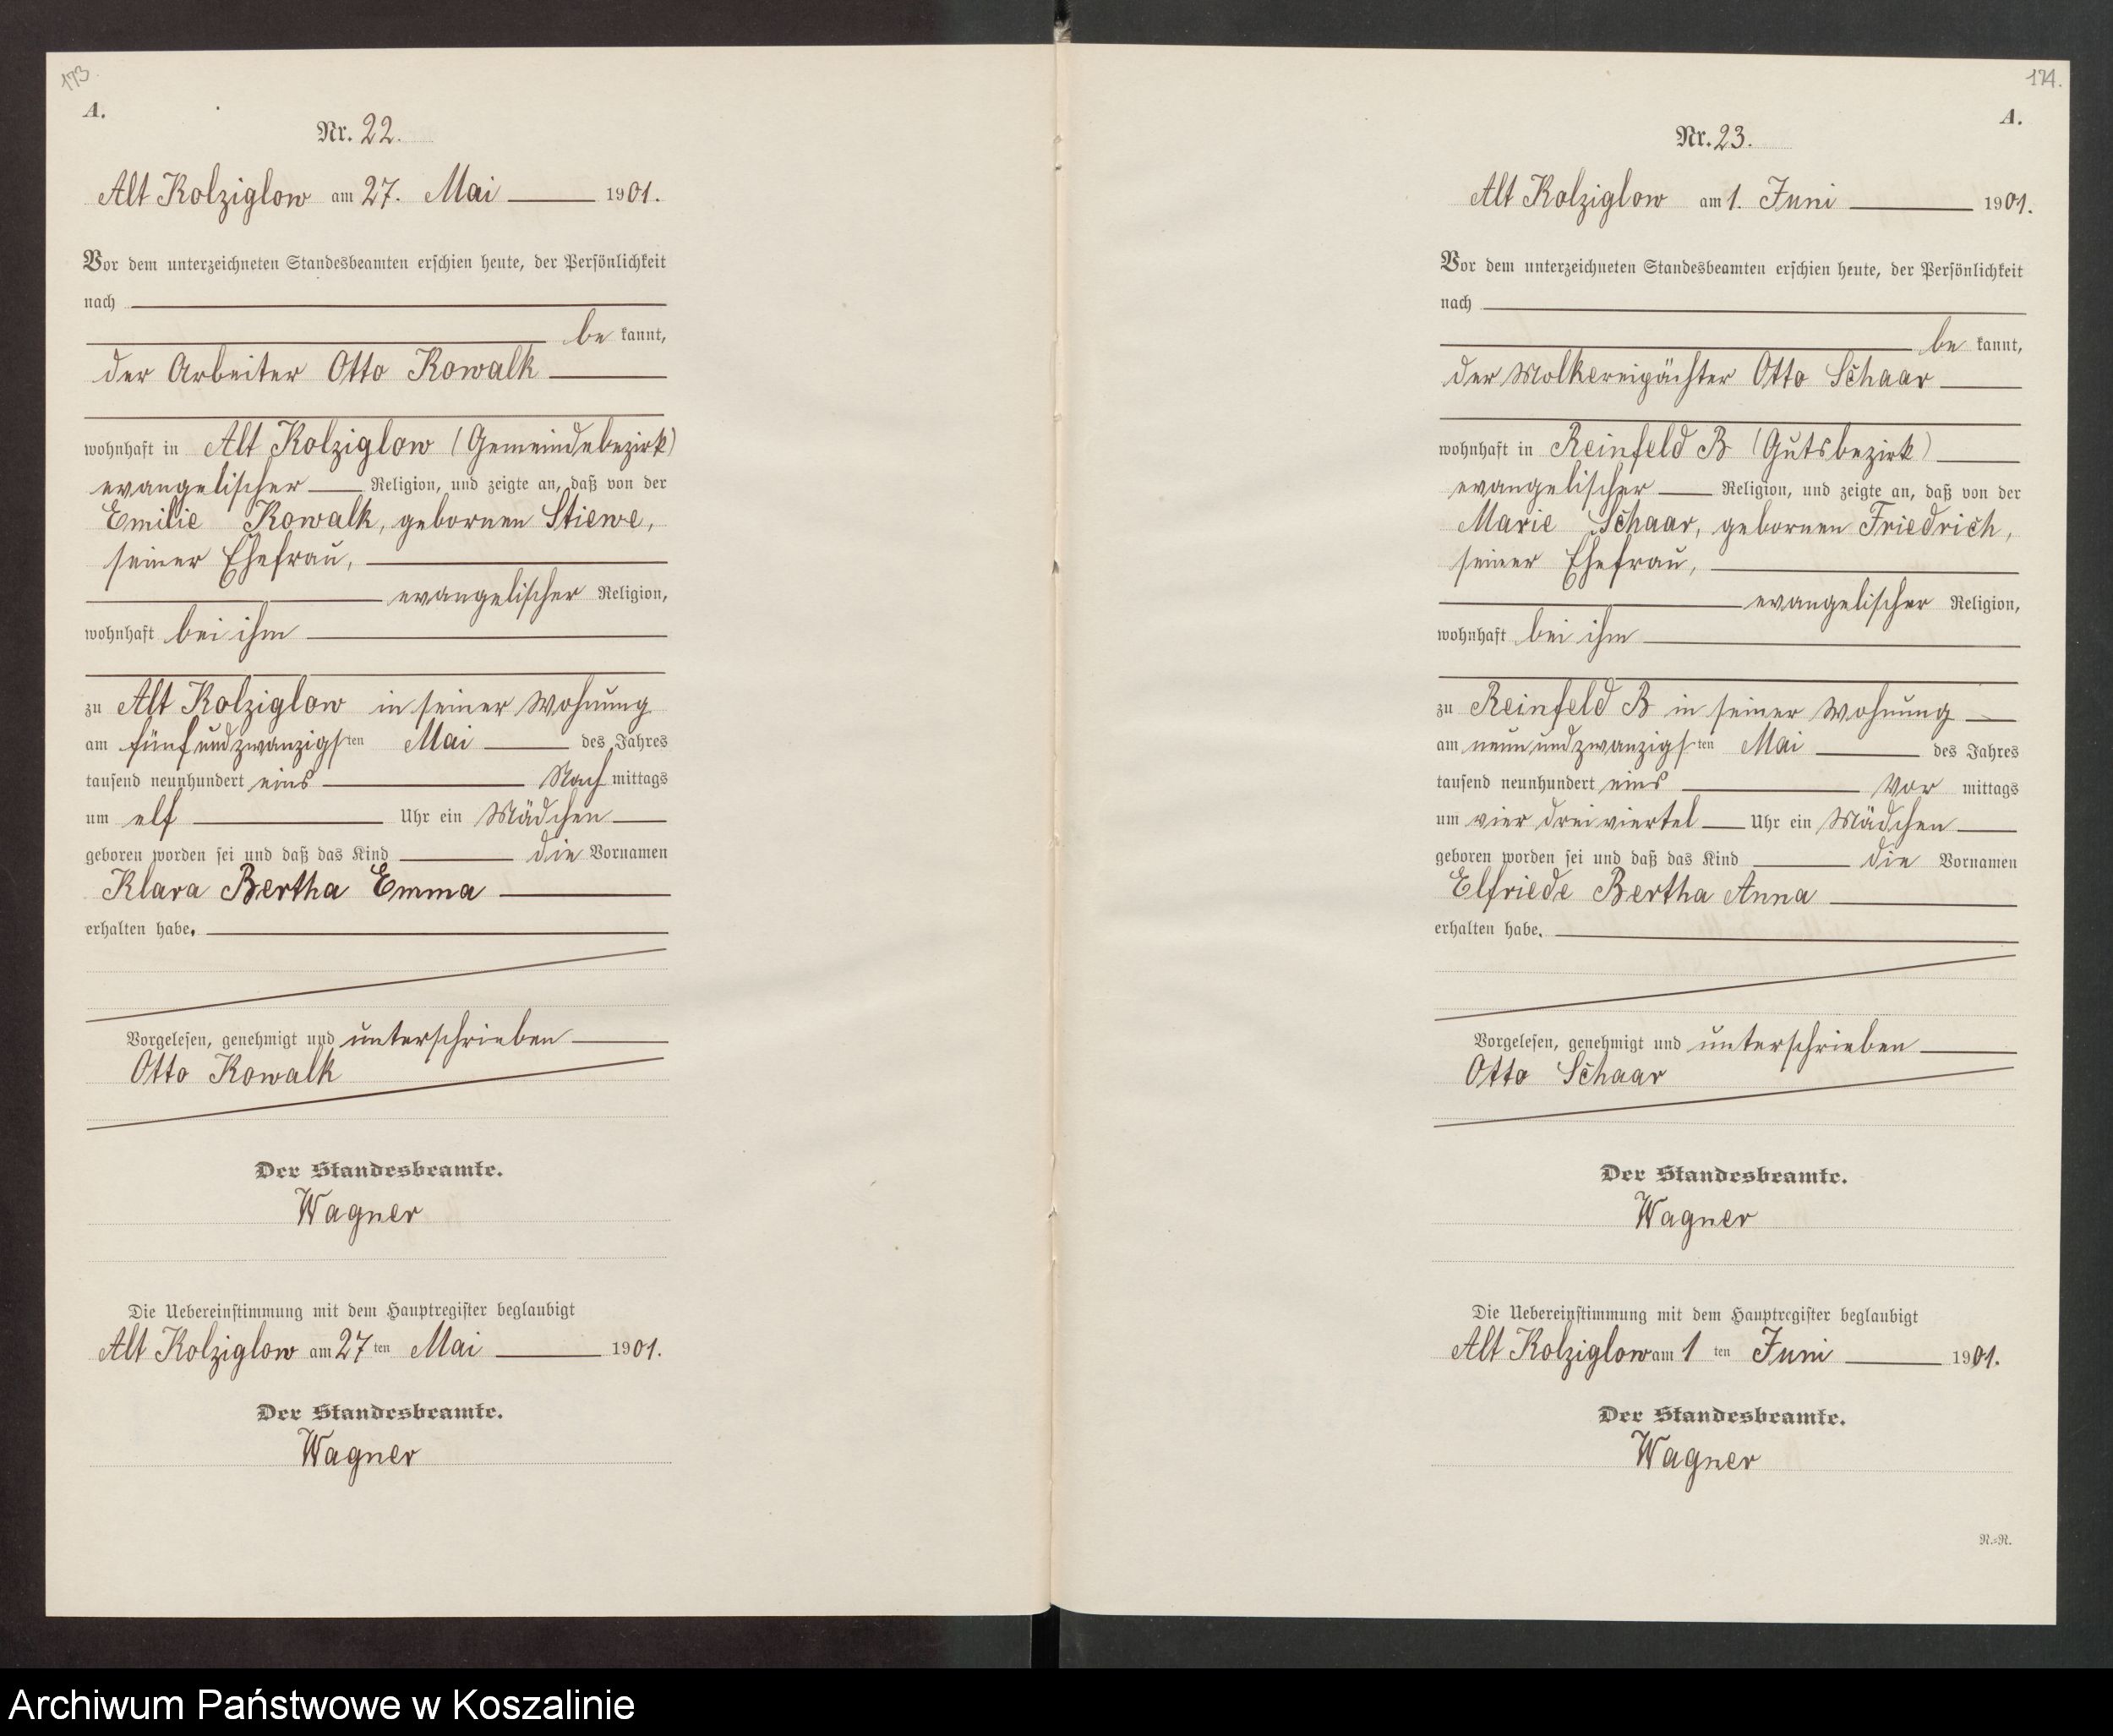 173.
A.
Nr. 22.
Alt Kolziglow am 27. Mai 1901.
Vor dem unterzeichneten Standesbeamten erschien heute, der Persönlichkeit
nach
be kannt,
der Arbeiter Otto Kowalk
wohnhaft in Alt Kolziglow (Gemeindebezirk)
evangelischer Religion, und zeigte an, daß von der
Emilie Kowalk, gebornen Stiewe,
seiner Ehefrau,
evangelischer Religion,
wohnhaft bei ihm
zu Alt Kolziglow in seiner Wohnung
am fünfundzwanzigsten Mai des Jahres
tausend neunhundert eins Nachmittags
um elf Uhr ein Mädchen
geboren worden sei und daß das Kind die Vornamen
Klara Bertha Emma
erhalten habe.
Vorgelesen, genehmigt und unterschrieben
Otto Kowalk
Der Standesbeamte.
Wagner
Die Uebereinstimmung mit dem Hauptregister beglaubigt
Alt Kolziglow am 27ten Mai 1901.
Der Standesbeamte.
Wagner
174.
A.
Nr. 23.
Alt Kolziglow am 1. Juni 1901.
Vor dem unterzeichneten Standesbeamten erschien heute, der Persönlichkeit
nach
be kannt,
der Molkereipächter Otto Schaar
wohnhaft in Reinfeld B (Gutsbezirk)
evangelischer Religion, und zeigte an, daß von der
Marie Schaar, gebornen Friedrich,
seiner Ehefrau,
evangelischer Religion,
wohnhaft bei ihm
zu Reinfeld B in seiner Wohnung
am neunundzwanzigsten Mai des Jahres
tausend neunhundert eins Vor mittags
um vier dreiviertel Uhr ein Mädchen
geboren worden sei und daß das Kind die Vornamen
Elfriede Bertha Anna
erhalten habe.
Vorgelesen, genehmigt und unterschrieben
Otto Schaar
Der Standesbeamte.
Wagner
Die Uebereinstimmung mit dem Hauptregister beglaubigt
Alt Kolziglow am 1 ten Juni 1901.
Der Standesbeamte.
Wagner
N.=R.
Archiwum Państwowe w Koszalinie